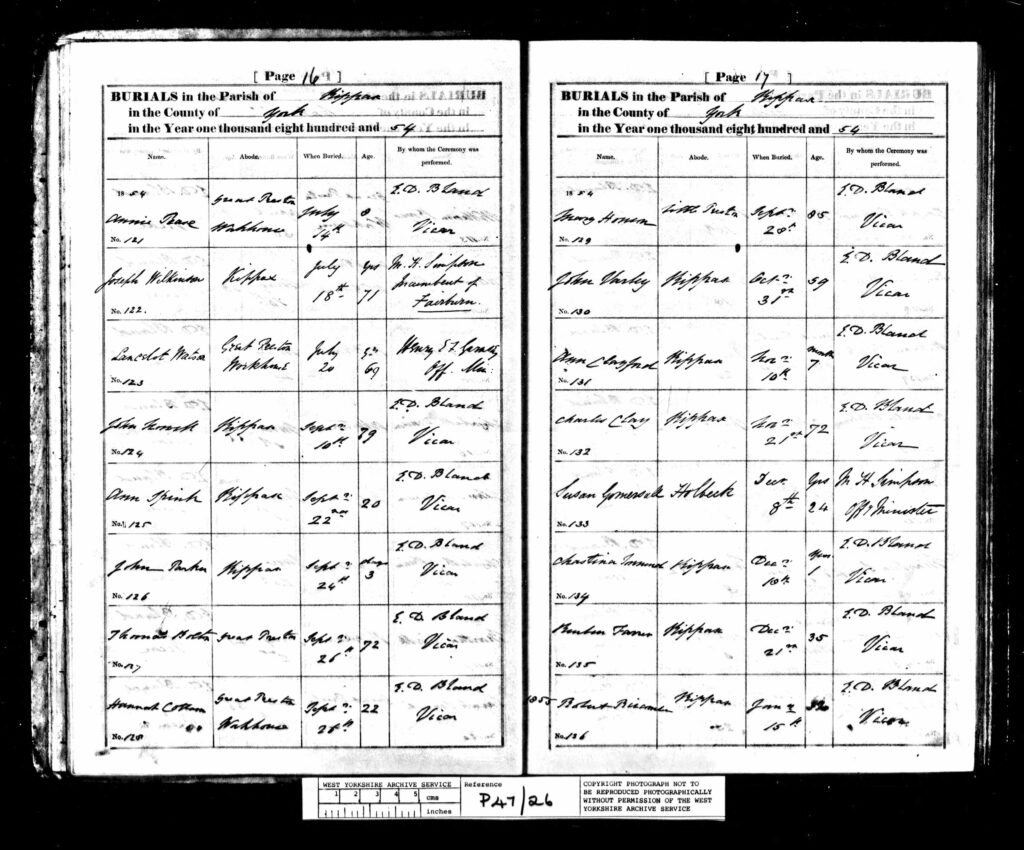 [ Page 16 ]
BURIALS in the Parish of Kippax
in the County of York
in the Year one thousand eight hundred and 54
Name. Abode. When Buried. Age. By whom the Ceremony was performed.
1854
Annie Pease Great Preston Workhouse July 14th 8 E. D. Bland Vicar
No. 121
Joseph Wilkinson Kippax July 18th yrs 71 M. H. Simpson Incumbent of Fairburn.
No. 122.
Lancelot Watson Great Preston Workhouse July 20 69 Henry Off. Min:
No. 123
John Kippax Septr 10th 79 E. D. Bland Vicar
No. 124
Ann Spink Kippax Septr 22nd 20 E. D. Bland Vicar
No. 125
John Parker Kippax Septr 24th days 3 E. D. Bland Vicar
No. 126
Thomas Bolton Great Preston Septr 26th 72 E. D. Bland Vicar
No. 127
Hannah Great Preston Workhouse Septr 28th 22 E. D. Bland Vicar
No. 128
[ Page 17 ]
BURIALS in the Parish of Kippax
in the County of York
in the Year one thousand eight hundred and 54
Name. Abode. When Buried. Age. By whom the Ceremony was performed.
1854
Mary Little Preston Septr 28th 85 E. D. Bland Vicar
No. 129
John Varley Kippax Octr 31st 39 E. D. Bland Vicar
No. 130
Ann Kippax Novr 10th months 7 E. D. Bland Vicar
No. 131
Charles Clay Kippax Novr 21st 72 E. D. Bland Vicar
No. 132
Susan Gomersall Holbeck Decr 8th Yrs 24 M. H. Simpson Offg Minister
No. 133
Kippax Decr 10th Year 1 E. D. Bland Vicar
No. 134
Kippax Decr 21st 35 E. D. Bland Vicar
No. 135
1855 Robert Kippax Jany 15th E. D. Bland Vicar
No. 136
WEST YORKSHIRE ARCHIVE SERVICE
1 2 3 4 5 cms
inches
Reference
P47/26
COPYRIGHT PHOTOGRAPH NOT TO
BE REPRODUCED PHOTOGRAPHICALLY
WITHOUT PERMISSION OF THE WEST
YORKSHIRE ARCHIVE SERVICE